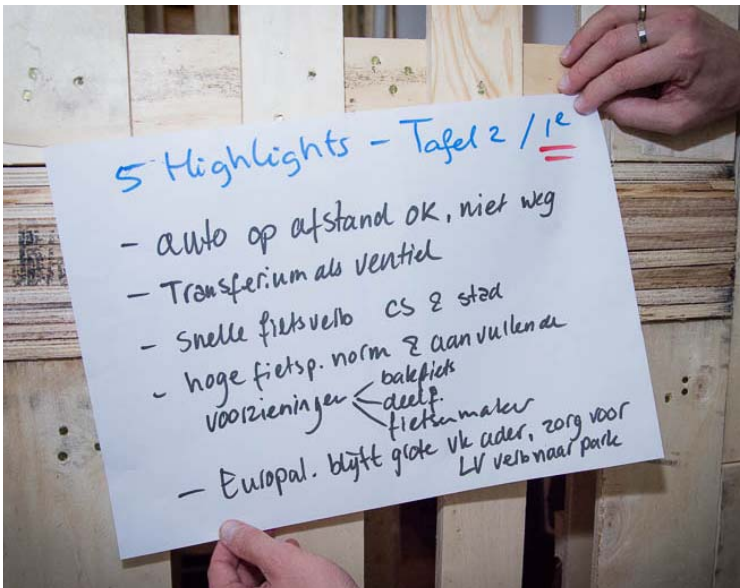 5 Highlights - Tafel 2 / 1e
- auto op afstand OK, niet weg
- Transferium als ventiel
- Snelle fietsverb CS & stad
- hoge fietsp. norm & aanvullende
voorzieningen
bakfiets
deelf.
fietsenmaker
- Europal. blijft grote vk ader, zorg voor
LV verb naar park